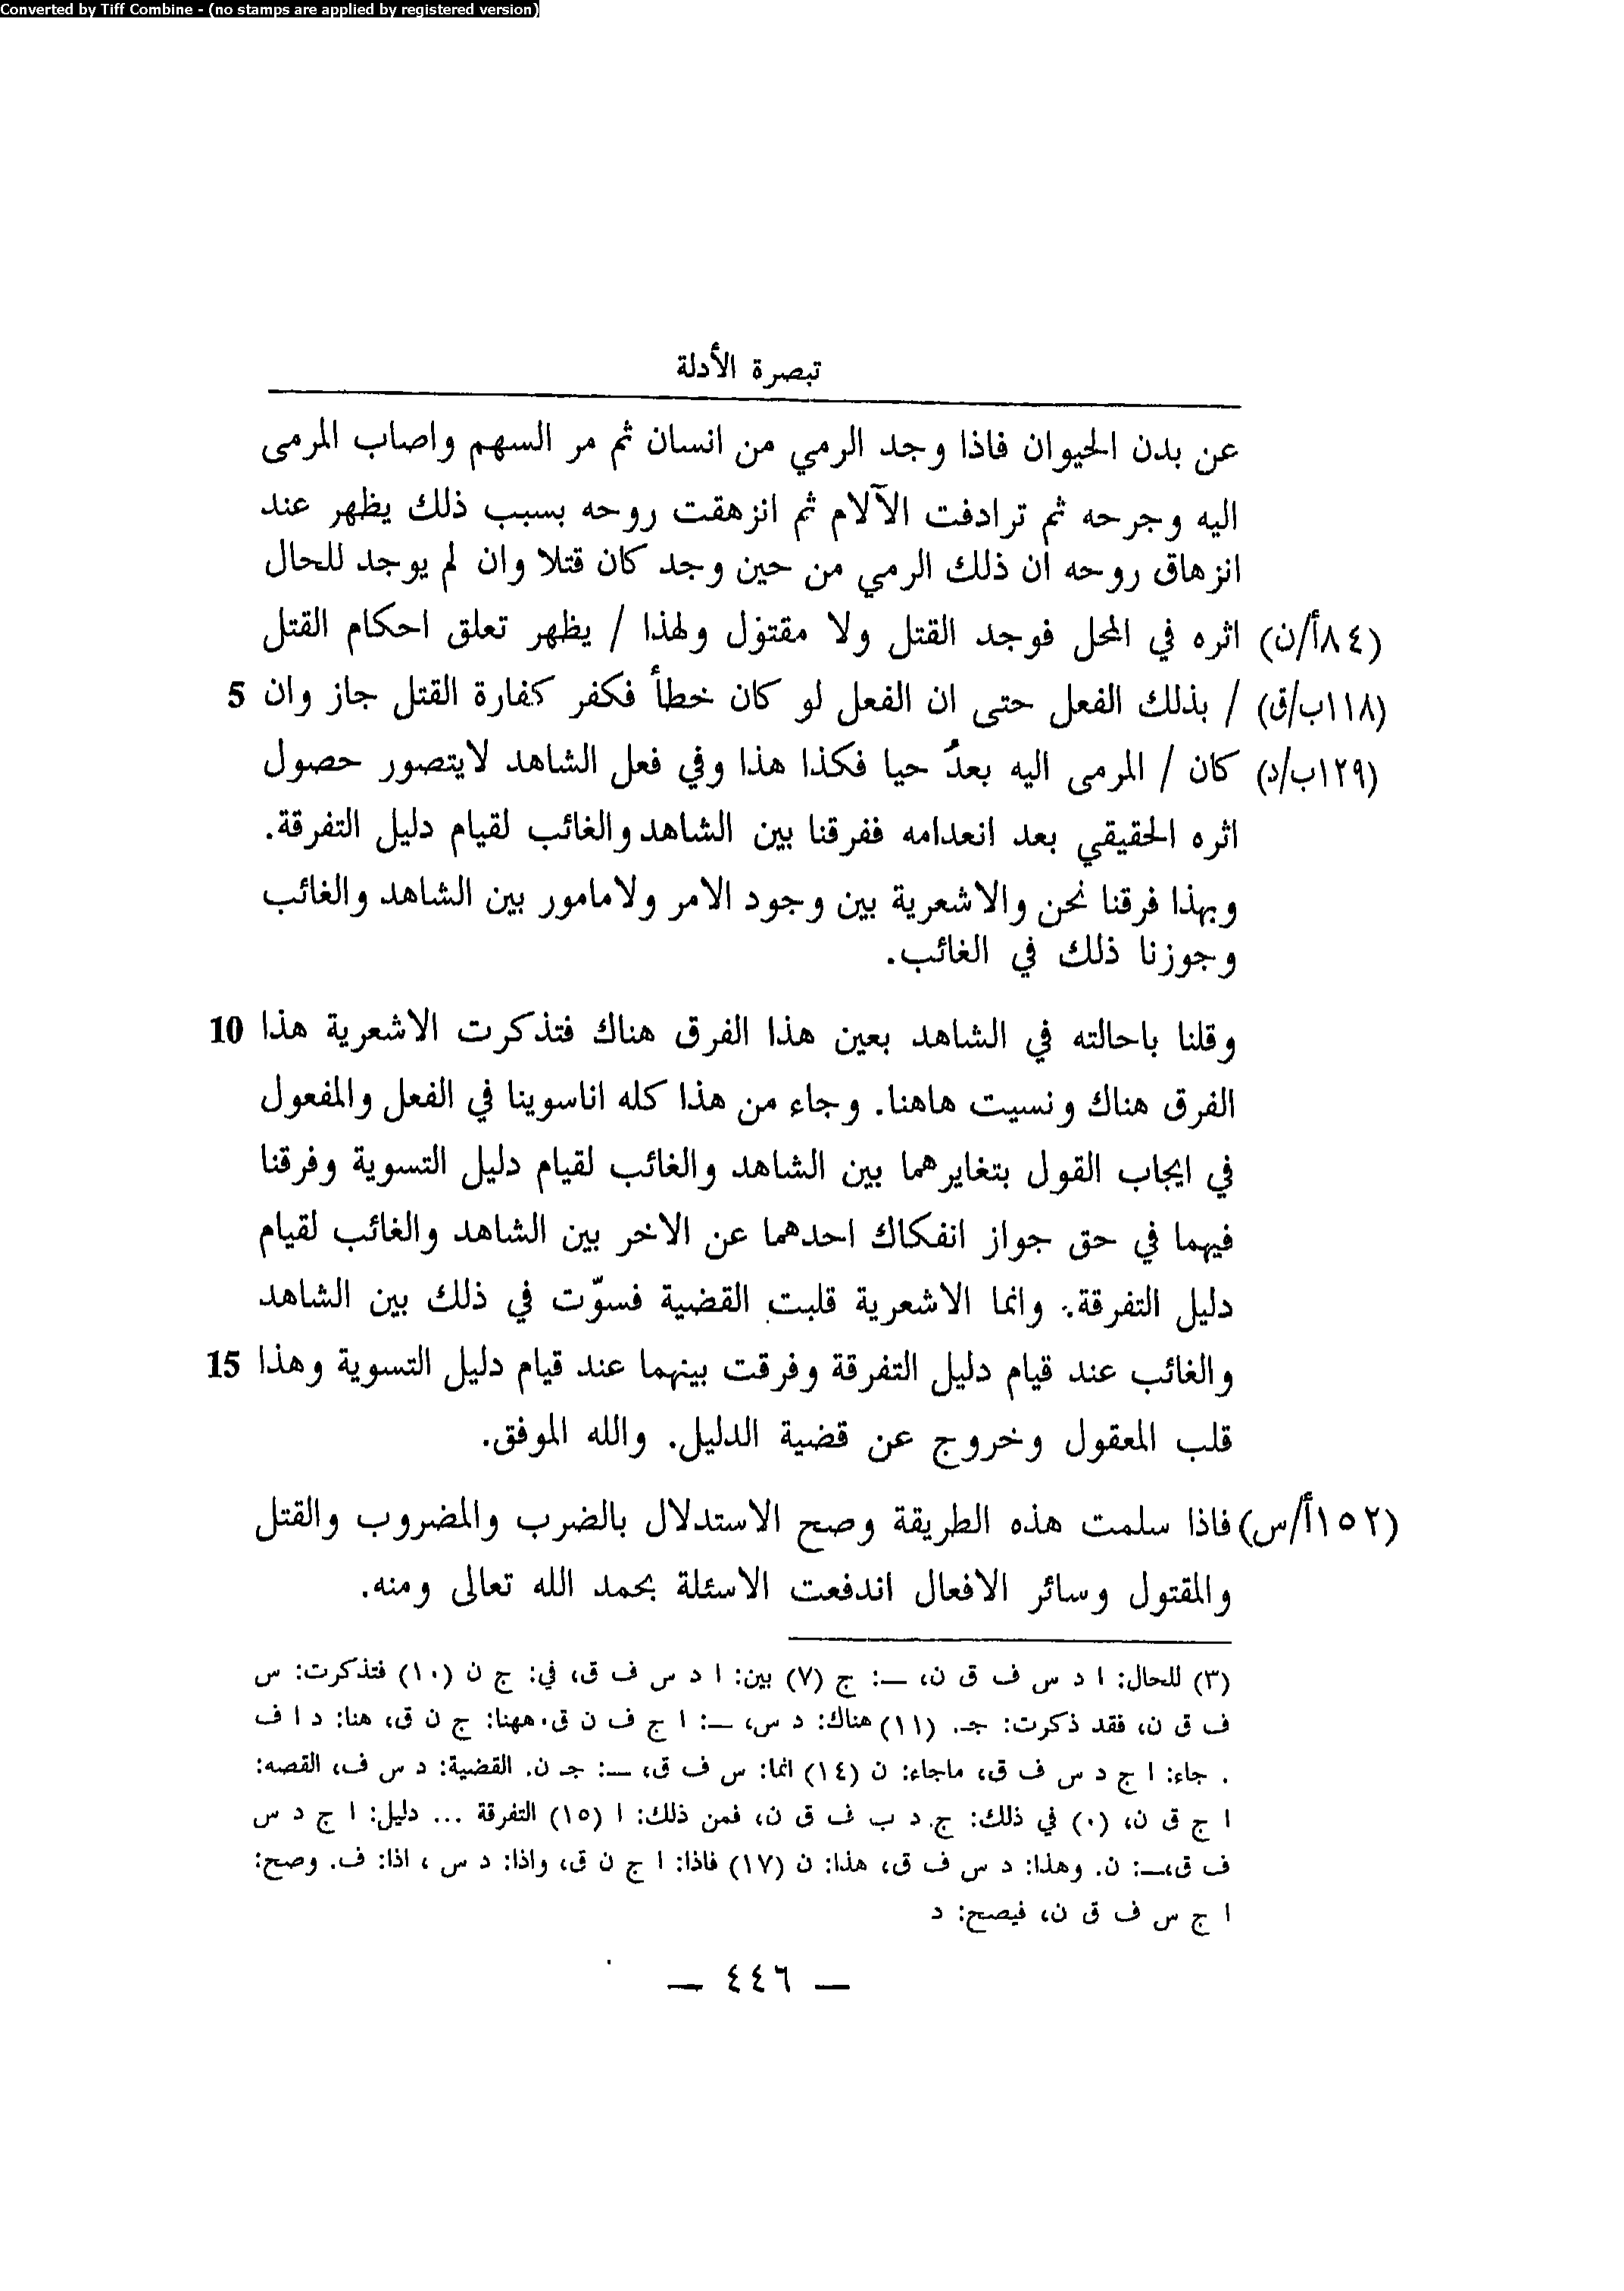 Converted by Tiff Combine - (no stamps are applied by registered version)
تبصرة الأدلة
عن بدن الحيوان فاذا وجد الرمي من انسان ثم مر السهم واصاب المرمى
اليه وجرحه ثم ترادفت الآلام ثم انزهقت روحه بسبب ذلك يظهر عند
انزهاق روحه ان ذلك الرمي من حين وجد كان قتلا وان لم يوجد للحال
(٨٤أ/ن) اثره في المحل فوجد القتل ولا مقتول ولهذا / يظهر تعلق احكام القتل
(١١٨ب/ق) / بذلك الفعل حتى ان الفعل لو كان خطأ فكفر كفارة القتل جاز وان 5
(١٢٩ب/د) كان / المرمى اليه بعدُ حيا فكذا هذا وفي فعل الشاهد لايتصور حصول
اثره الحقيقي بعد انعدامه ففرقنا بين الشاهد والغائب لقيام دليل التفرقة.
وبهذا فرقنا نحن والاشعرية بين وجود الامر ولامامور بين الشاهد والغائب
وجوزنا ذلك في الغائب.
وقلنا باحالته في الشاهد بعين هذا الفرق هناك فتذكرت الاشعرية هذا 10
الفرق هناك ونسيت هاهنا. وجاء من هذا كله اناسوينا في الفعل والمفعول
في ايجاب القول بتغايرهما بين الشاهد والغائب لقيام دليل التسوية وفرقنا
فيهما في حق جواز انفكاك احدهما عن الاخر بين الشاهد والغائب لقيام
دليل التفرقة. وانما الاشعرية قلبت القضية فسوّت في ذلك بين الشاهد
والغائب عند قيام دليل التفرقة وفرقت بينهما عند قيام دليل التسوية وهذا 15
قلب المعقول وخروج عن قضية الدليل. والله الموفق.
(١٥٢أ/س) فاذا سلمت هذه الطريقة وصح الاستدلال بالضرب والمضروب والقتل
والمقتول وسائر الافعال اندفعت الاسئلة بحمد الله تعالى ومنه.
(٣) للحال: ا د س ف ق ن، ــ: ج (٧) بين: ا د س ف ق، في: ج ن (١٠) فتذكرت: س
ف ق ن، فقد ذكرت: جـ. (١١) هناك: د س، ــ: ا ج ف ن ق. ههنا: ج ن ق، هنا: د ا ف
. جاء: ا ج د س ف ق، ماجاء: ن (١٤) انما: س ف ق، ــ: جـ ن. القضية: د س ف، القصه:
ا ج ق ن، (٠) في ذلك: ج. د ب ف ق ن، فمن ذلك: ا (١٥) التفرقة ... دليل: ا ج د س
ف ق،ــ: ن. وهذا: د س ف ق، هذا: ن (١٧) فاذا: ا ج ن ق، واذا: د س ، اذا: ف. وصح:
ا ج س ف ق ن، فيصح: د
— ٤٤٦ —